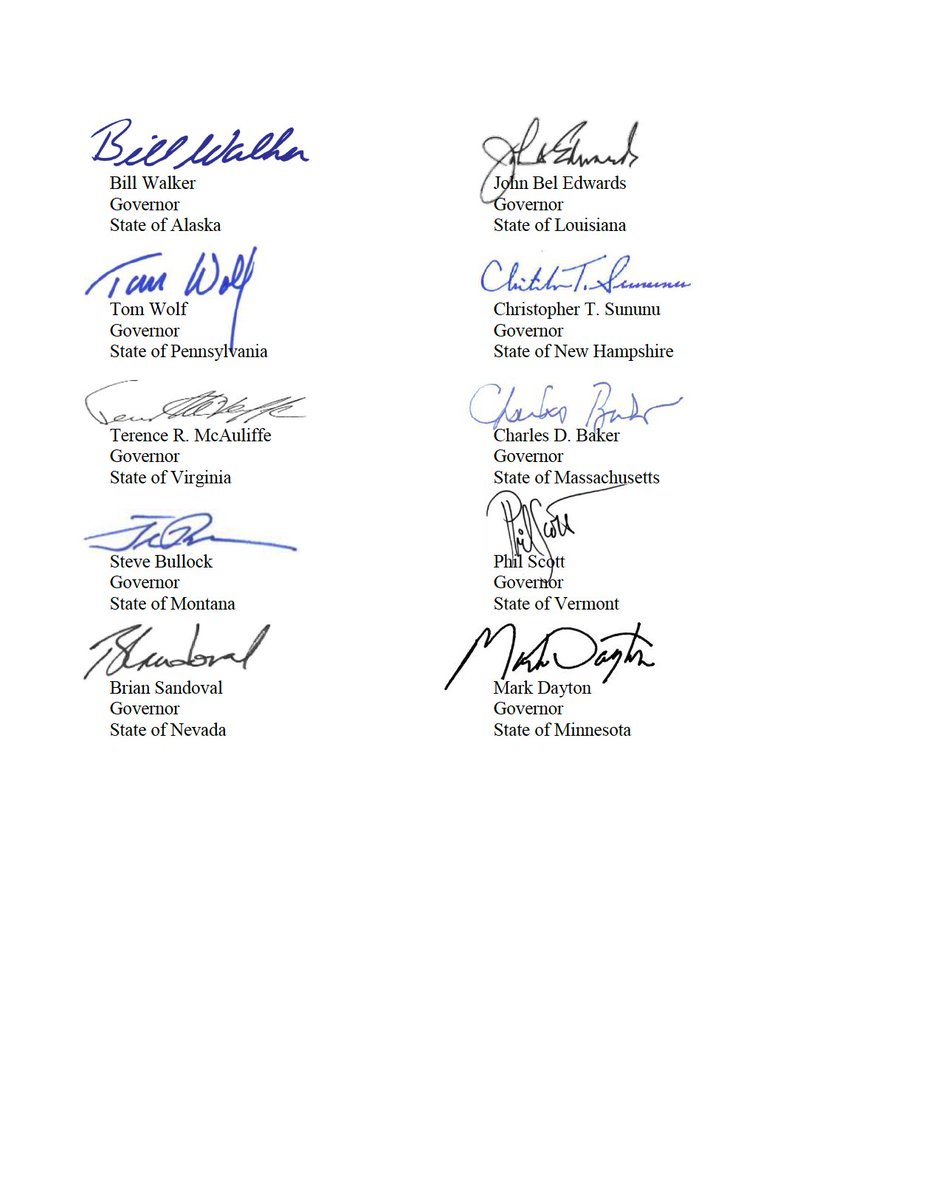 Bill Walker
Bill Walker
Governor
State of Alaska
John Bel Edwards
Governor
State of Louisiana
Tom Wolf
Tom Wolf
Governor
State of Pennsylvania
Christopher T. Sununu
Governor
State of New Hampshire
Terence R. McAuliffe
Governor
State of Virginia
Charles Baker
Charles D. Baker
Governor
State of Massachusetts
Steve Bullock
Governor
State of Montana
Phil Scott
Phil Scott
Governor
State of Vermont
BSandoval
Brian Sandoval
Governor
State of Nevada
Mark Dayton
Mark Dayton
Governor
State of Minnesota